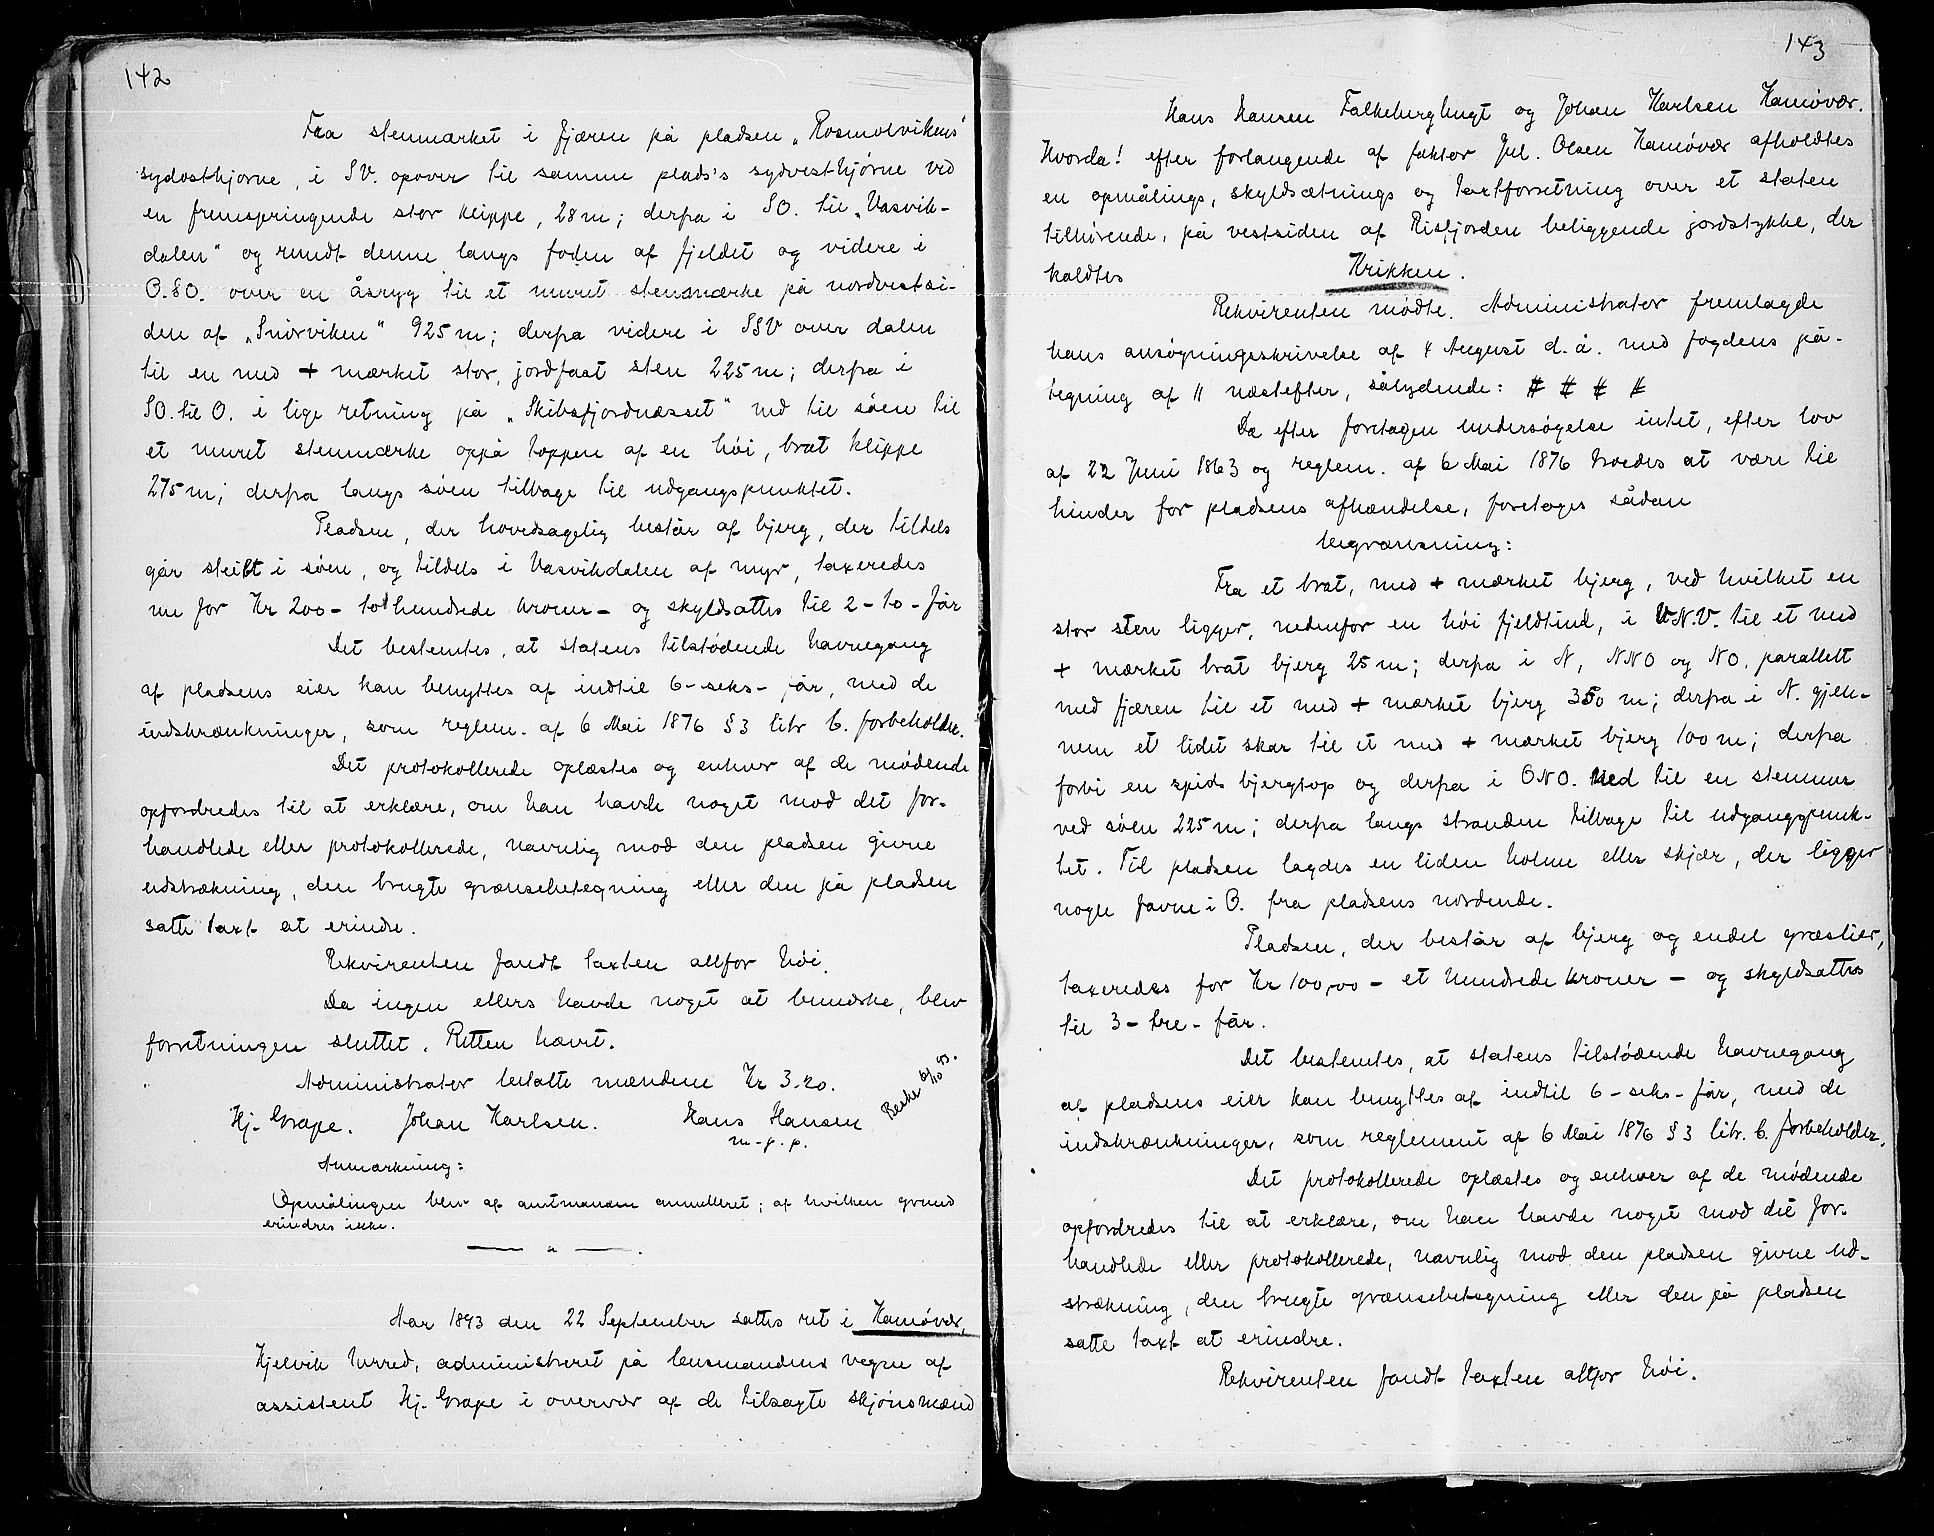 142
Fra stenmærket i fjæren på pladsen „Rosmolvikens"
sydosthjørne, i SV. opover til samme plads's sydvesthjørne ved
en fremspringende stor klippe, 28 m; derpa i SO. til „Vasvik-
dalen" og rundt denne langs foden af fjeldet og videre i
O.SO. over en åsryg til et muret stenmærke på nordvestsi-
den af „Snørviken" 925 m; derpa videre i SSV over dalen
til en med + mærket stor, jordfast sten 225 m; derpa i
SO. til O. i lige retning på „Skibsfjordnæsset" ned til søen til
et muret stenmærke oppå toppen af en høi, brat klippe
275 m; derpa langs søen tilbage til udgangspunktet.
Pladsen, der hovedsagelig består af bjerg, der tildels
går steilt i søen, og tildels i Vasvikdalen af myr, taxeredes
nu for Kr 200 - to hundrede kroner - og skyldsattes til 2 - to - får
Det bestemtes, at statens tilstødende havnegang
af pladsens eier kan benyttes af indtil 6 - seks - får, med de
indskrænkninger, som reglem. af 6 Mai 1876 § 3 litr b. forbeholder.
Det protokollerede oplæstes og enhver af de mødende
opfordredes til at erklære, om han havde noget mod det for-
handlede eller protokollerede, navnlig mod den pladsen givne
udstrækning, den brugte grænsebetegning eller den på pladsen
satte taxt at erindre.
Rekvirenten fandt taxten altfor høi.
Da ingen ellers havde noget at bemærke, blev
forretningen sluttet. Retten hævet.
Administrator betalte mændene Kr 3.20.
Hj. Grape. Johan Karlsen. Hans Hansen
m. p. p.
Anmærkning:
Opmålingen blev af amtmanden annulleret; af hvilken grund
erindres ikke.
Aar 1893 den 22 September sattes ret i Hamøvær,
Kjelvik herred, administreret på lensmandens vegne af
assistent Hj. Grape i overvær af de tilsagte skjønsmænd
143
Hans Hansen Falkeberghugt og Johan Karlsen Hamøvær.
Hvorda! efter forlangende af faktor Jul. Olsen Hamøvær afholdtes
en opmålings, skyldsætnings og taxtforretning over et staten
tilhørende, på vestsiden af Risfjorden beliggende jordstykke, der
kaldtes Krikken.
Rekvirenten mødte. Administrator fremlagde
hans ansøgningsskrivelse af 4 August d. å. med fogdens på-
tegning af 11 næstefter, sålydende: # # # #
Da efter foretagen undersøgelse intet, efter lov
af 22 Juni 1863 og reglem. af 6 Mai 1876 troedes at være til
hinder for pladsens afhændelse, foretoges sådan
begrænsning:
Fra et brat, med + mærket bjerg, ved hvilket en
stor sten ligger, nedenfor en høi fjeldtind, i V.N.V. til et med
+ mærket brat bjerg 25 m; derpa i N, NNO og NO. parallelt
med fjæren til et med + mærket bjerg 350 m; derpa i N. gjen-
nem et lidet skar til et med + mærket bjerg 100 m; derpa
forbi en spids bjergtop og derpa i ONO. ned til en stenmur
ved søen 225 m; derpa langs stranden tilbage til udgangspunk-
tet. Til pladsen lagdes en liden holme eller skjær, der ligger
nogle favne i O. fra pladsens nordende.
Pladsen, der består af bjerg og endel græslier,
taxeredes for Kr 100,00 - et hundrede kroner - og skyldsattes
til 3 - tre - får.
Det bestemtes, at statens tilstødende havnegang
af pladsens eier kan benyttes af indtil 6 - seks - får, med de
indskrænkninger, som reglement af 6 Mai 1876 § 3 litr. b. forbeholder.
Det protokollerede oplæstes og enhver af de mødende
opfordredes til at erklære, om han havde noget mod det for-
handlede eller protokollerede, navnlig mod den pladsen givne ud-
strækning, den brugte grænsebetegning eller den på pladsen
satte taxt at erindre.
Rekvirenten fandt taxten altfor høi.